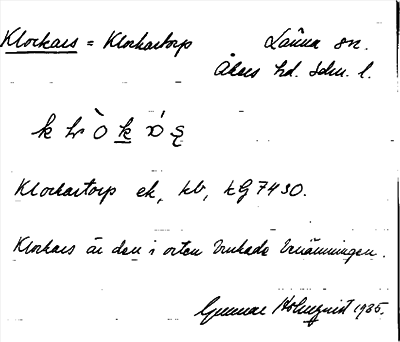 Klockars = Klockartorp Länna sn.
Åkers hd. Sdm. l.
Klockartorp ek, kb, kG 7430.
Klockars är den i orten brukade benämningen.
Gunnar Holmquist 1935.